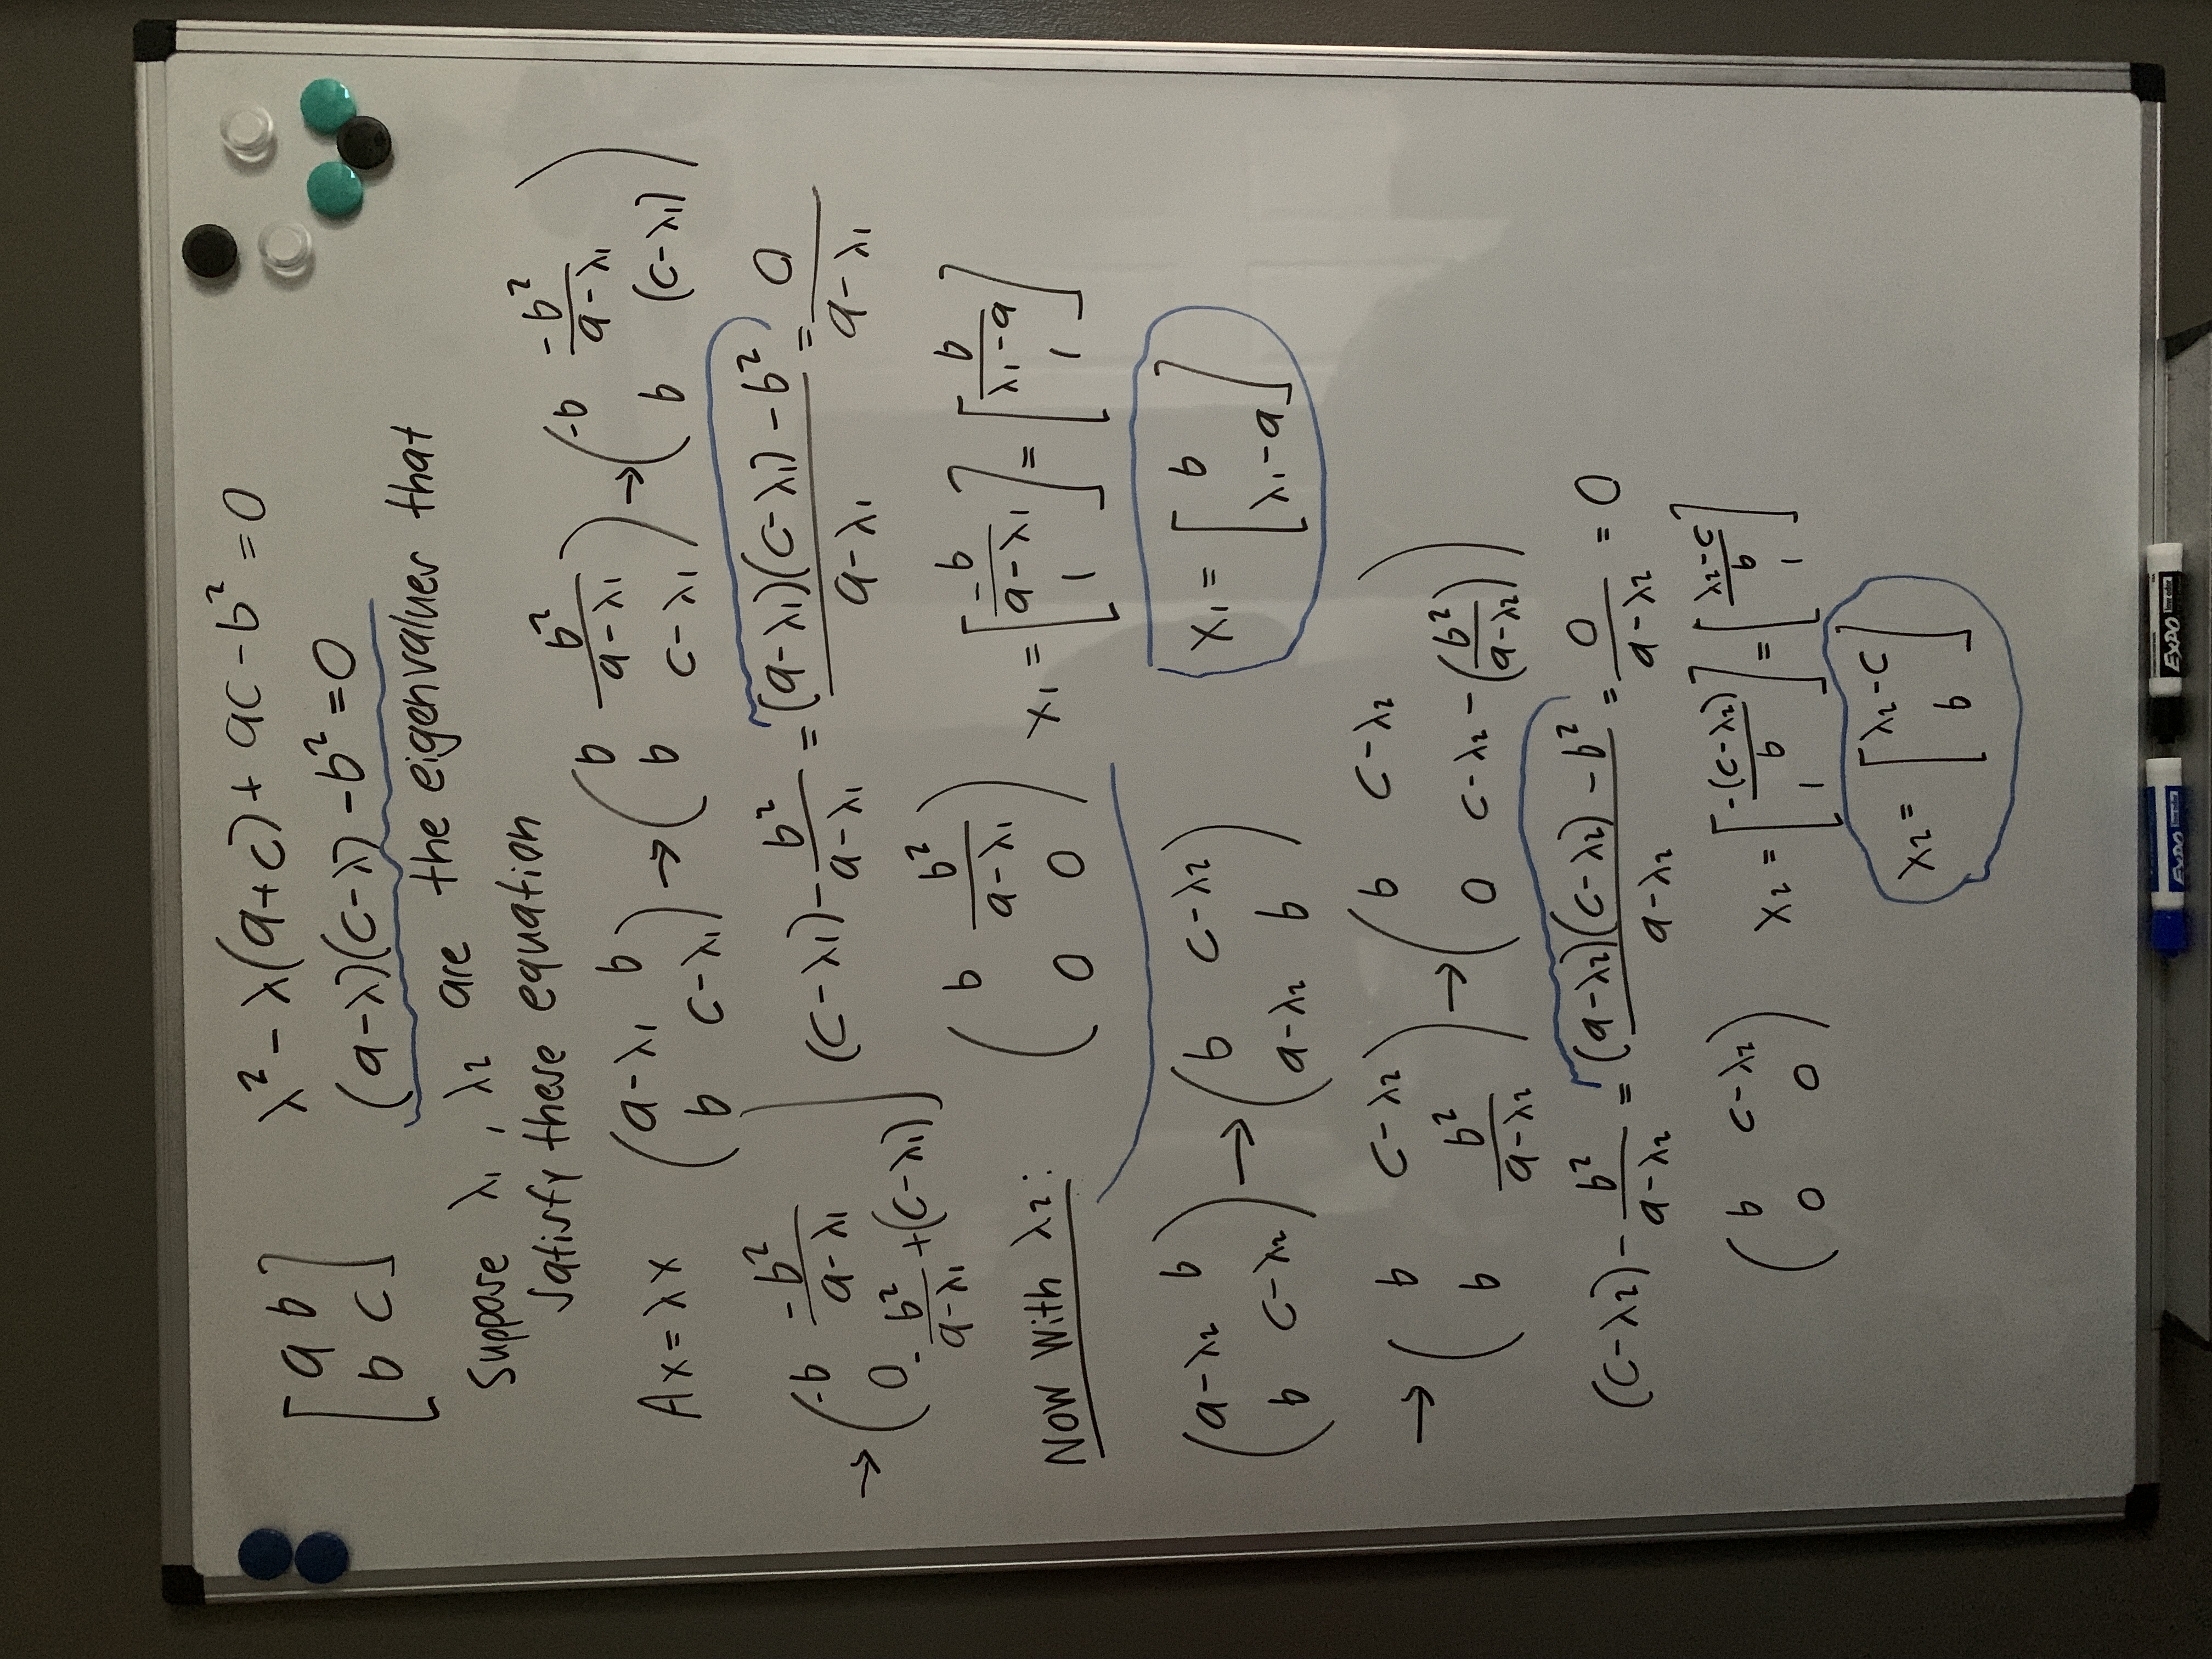 [a b; b c] λ² - λ(a+c) + ac - b² = 0
(a-λ)(c-λ) - b² = 0
Suppose λ₁, λ₂ are the eigenvalues that
satisfy these equation
Ax = λx (a-λ₁ b; b c-λ₁) → (b b²/(a-λ₁); b c-λ₁) → (-b -b²/(a-λ₁); b (c-λ₁))
→ (-b -b²/(a-λ₁); 0 -b²/(a-λ₁) + (c-λ₁)) (c-λ₁) - b²/(a-λ₁) = ((a-λ₁)(c-λ₁) - b²)/(a-λ₁) = 0/(a-λ₁)
(b b²/(a-λ₁); 0 0) x₁ = [-b/(a-λ₁); 1] = [b/(λ₁-a); 1]
Now With λ₂:
x₁ = [b; λ₁-a]
(a-λ₂ b; b c-λ₂) → (b c-λ₂; a-λ₂ b)
→ (b c-λ₂; b b²/(a-λ₂)) → (b c-λ₂; 0 c-λ₂-(b²/(a-λ₂)))
(c-λ₂) - b²/(a-λ₂) = ((a-λ₂)(c-λ₂) - b²)/(a-λ₂) = 0/(a-λ₂) = 0
(b c-λ₂; 0 0) x₂ = [-(c-λ₂)/b; 1] = [(λ₂-c)/b; 1]
x₂ = [λ₂-c; b]
EXPO
EXPO